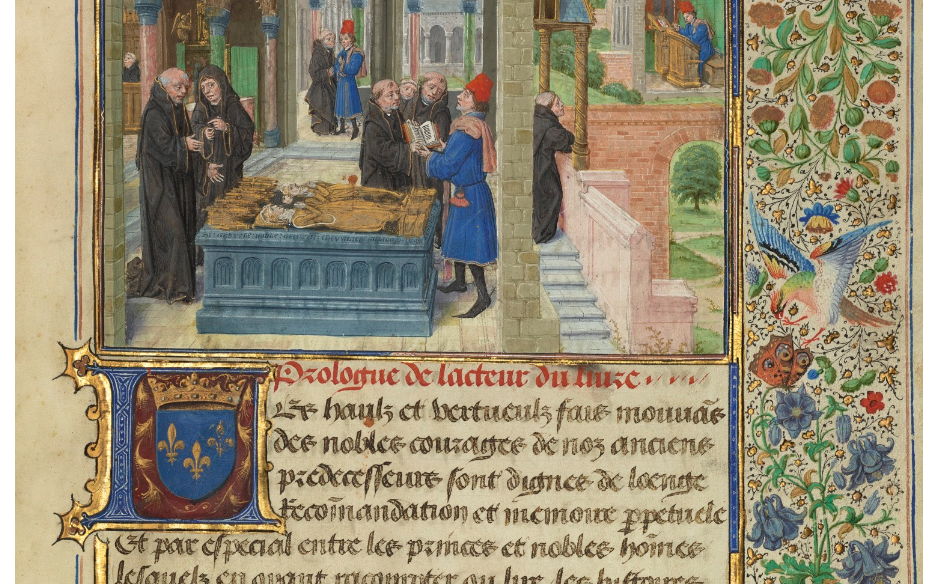 Prologue de lacteur du liure
Les haulz et vertueulz fais mouuãs
des nobles courages de noz anciens
predecesseurs sont dignes de loenge
Recom̃andation et memoire ꝑpetuele
Et par especial entre les princes et nobles hom̃es
lesquelz en oyant racompter ou lire les hystoires